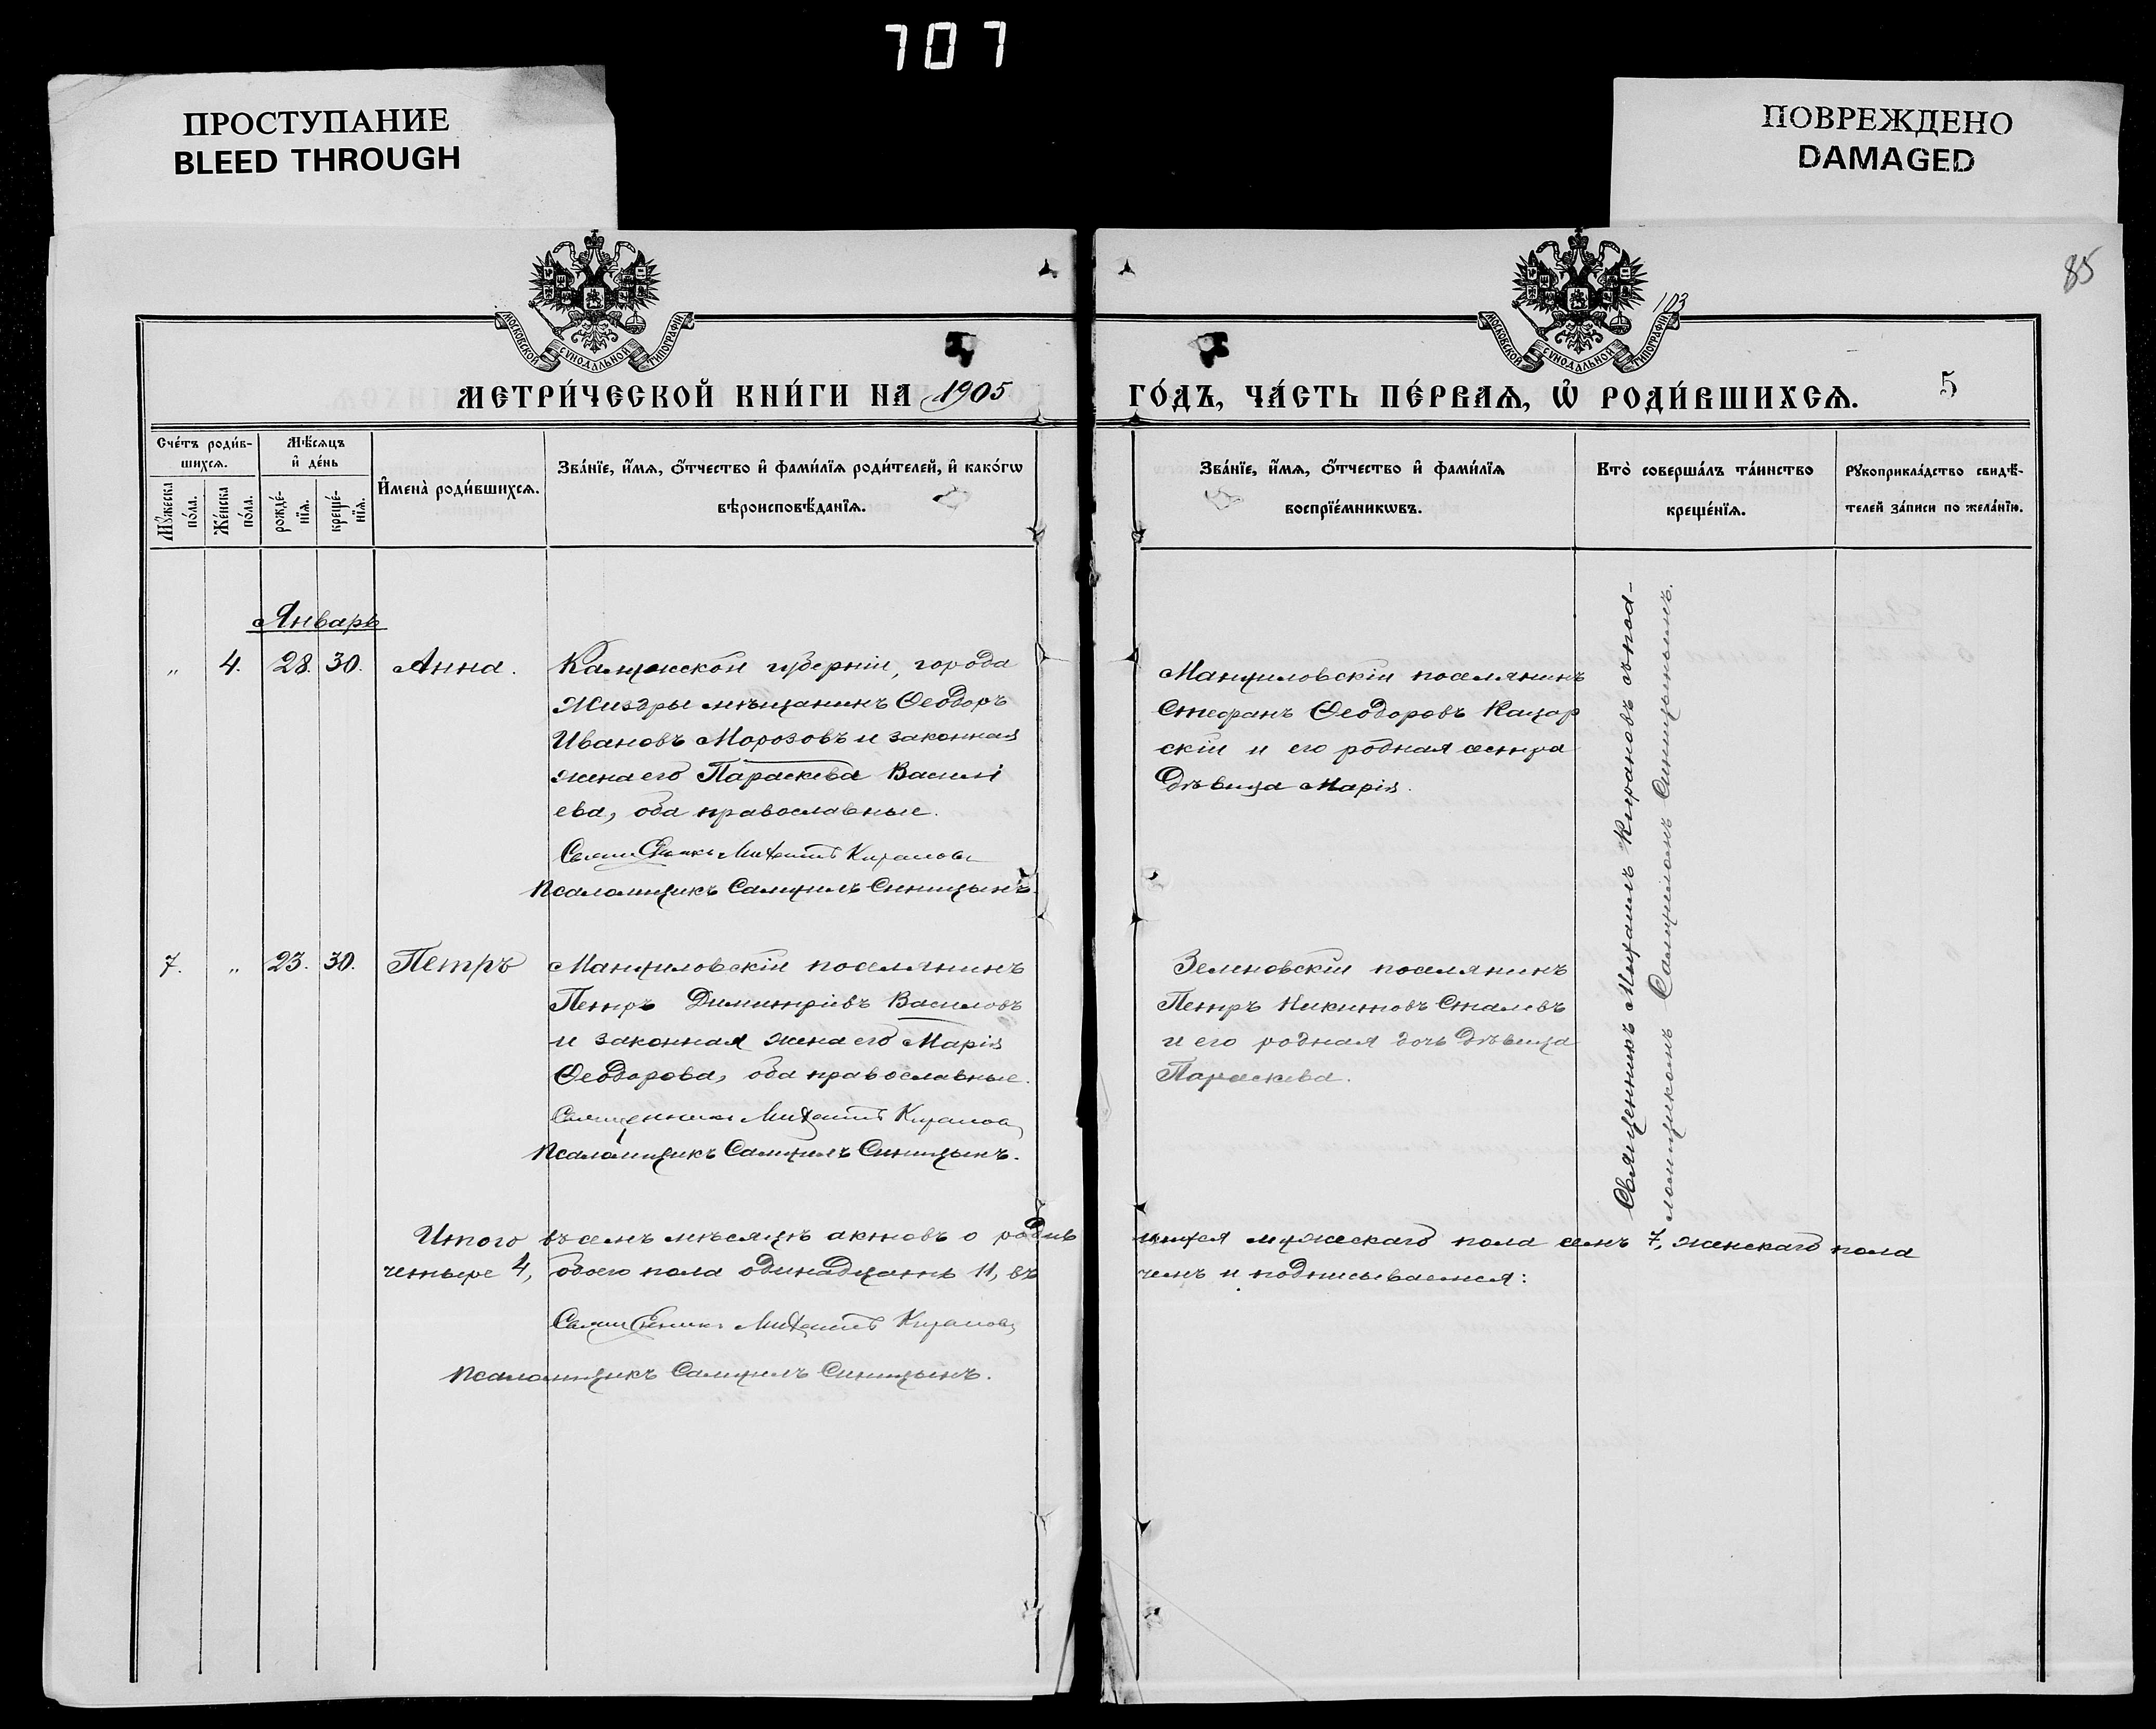 707
ПРОСТУПАНИЕ
BLEED THROUGH
ПОВРЕЖДЕНО
DAMAGED
85
103
МОСКОВСКОЙ СУНОДАЛЬНОЙ ТИПОГРАФІИ
МОСКОВСКОЙ СУНОДАЛЬНОЙ ТИПОГРАФІИ
МЕТРИ́ЧЕСКОЙ КНИ́ГИ НА 1905
ГО́ДЪ, ЧА́СТЬ ПЕ́РВАЯ, Ѡ҆ РОДИ́ВШИХСЯ.
5
Сче́тъ роди́в-
шихся.
Мꙋ́жеска по́ла.
Же́нска по́ла.
Мѣ́сяцъ
и҆ де́нь
рожде́-
нїя.
креще́-
нїя.
И҆мена̀ роди́вшихся.
Зва́нїе, и҆́мя, ѻ҆́тчество и҆ фами́лїя роди́телей, и҆ како́гѡ
вѣроисповѣ́данїя.
Зва́нїе, и҆́мя, ѻ҆́тчество и҆ фами́лїя
воспрїе́мникѡвъ.
Кто̀ соверша́лъ та́инство
креще́нїя.
Рꙋкоприкла́дство свидѣ́-
телей за́писи по жела́нїю.
Январь
„ 4. 28. 30. Анна.
Калужской губерніи, города
Жиздры мѣщанинъ Ѳеодоръ
Ивановъ Морозовъ и законная
жена его Параскева Василі
ева, оба православные.
Священникъ Михаилъ Кирановъ
Псаломщикъ Самуилъ Синицынъ.
Манжиловскій поселянинъ
Стефанъ Ѳеодоровъ Кацар
скій и его родная сестра
дѣвица Марія.
7. „ 23. 30. Петръ
Манжиловскій поселянинъ
Петръ Димитріевъ Василовъ
и законная жена его Марія
Ѳеодорова, оба православные.
Священникъ Михаилъ Кирановъ
Псаломщикъ Самуилъ Синицынъ.
Зеленовскій поселянинъ
Петръ Никитовъ Сталевъ
и его родная дочь дѣвица
Параскева.
Священникъ Михаилъ Кирановъ съ пса-
ломщикомъ Самуиломъ Синицынымъ.
Итого въ семъ мѣсяцѣ актовъ о родив
шихся мужескаго пола семь 7, женскаго пола
четыре 4, обоего пола одинадцать 11, въ
чемъ и подписываемся:
Священникъ Михаилъ Кирановъ
Псаломщикъ Самуилъ Синицынъ.